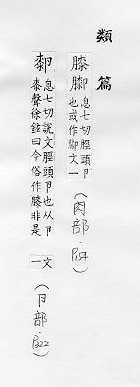 類篇
膝
息七切脛頭卪
也或作文一
(肉部·
厀
息七切說文脛頭卪也从卪
桼聲徐鉉曰今俗作膝非是
文一
(卪部·P322)